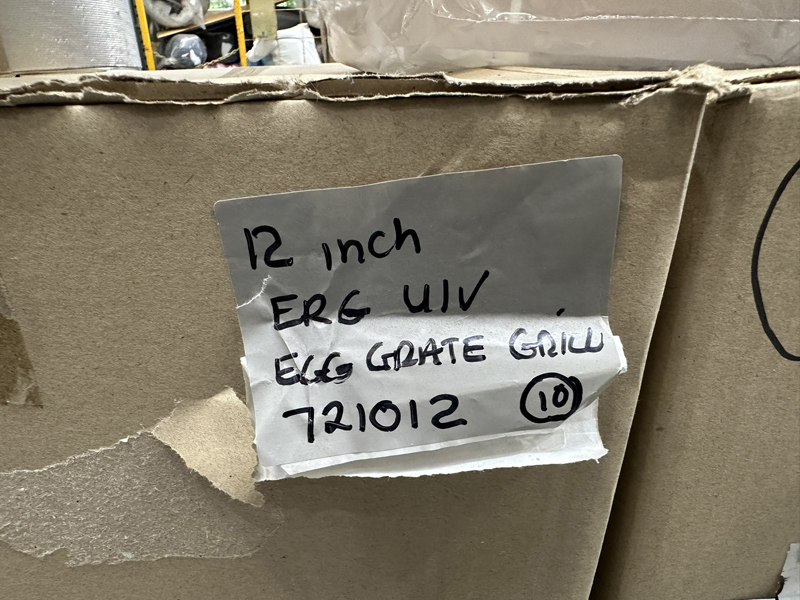 12 inch
ERG UIV
EGG GRATE GRILL
721012 10